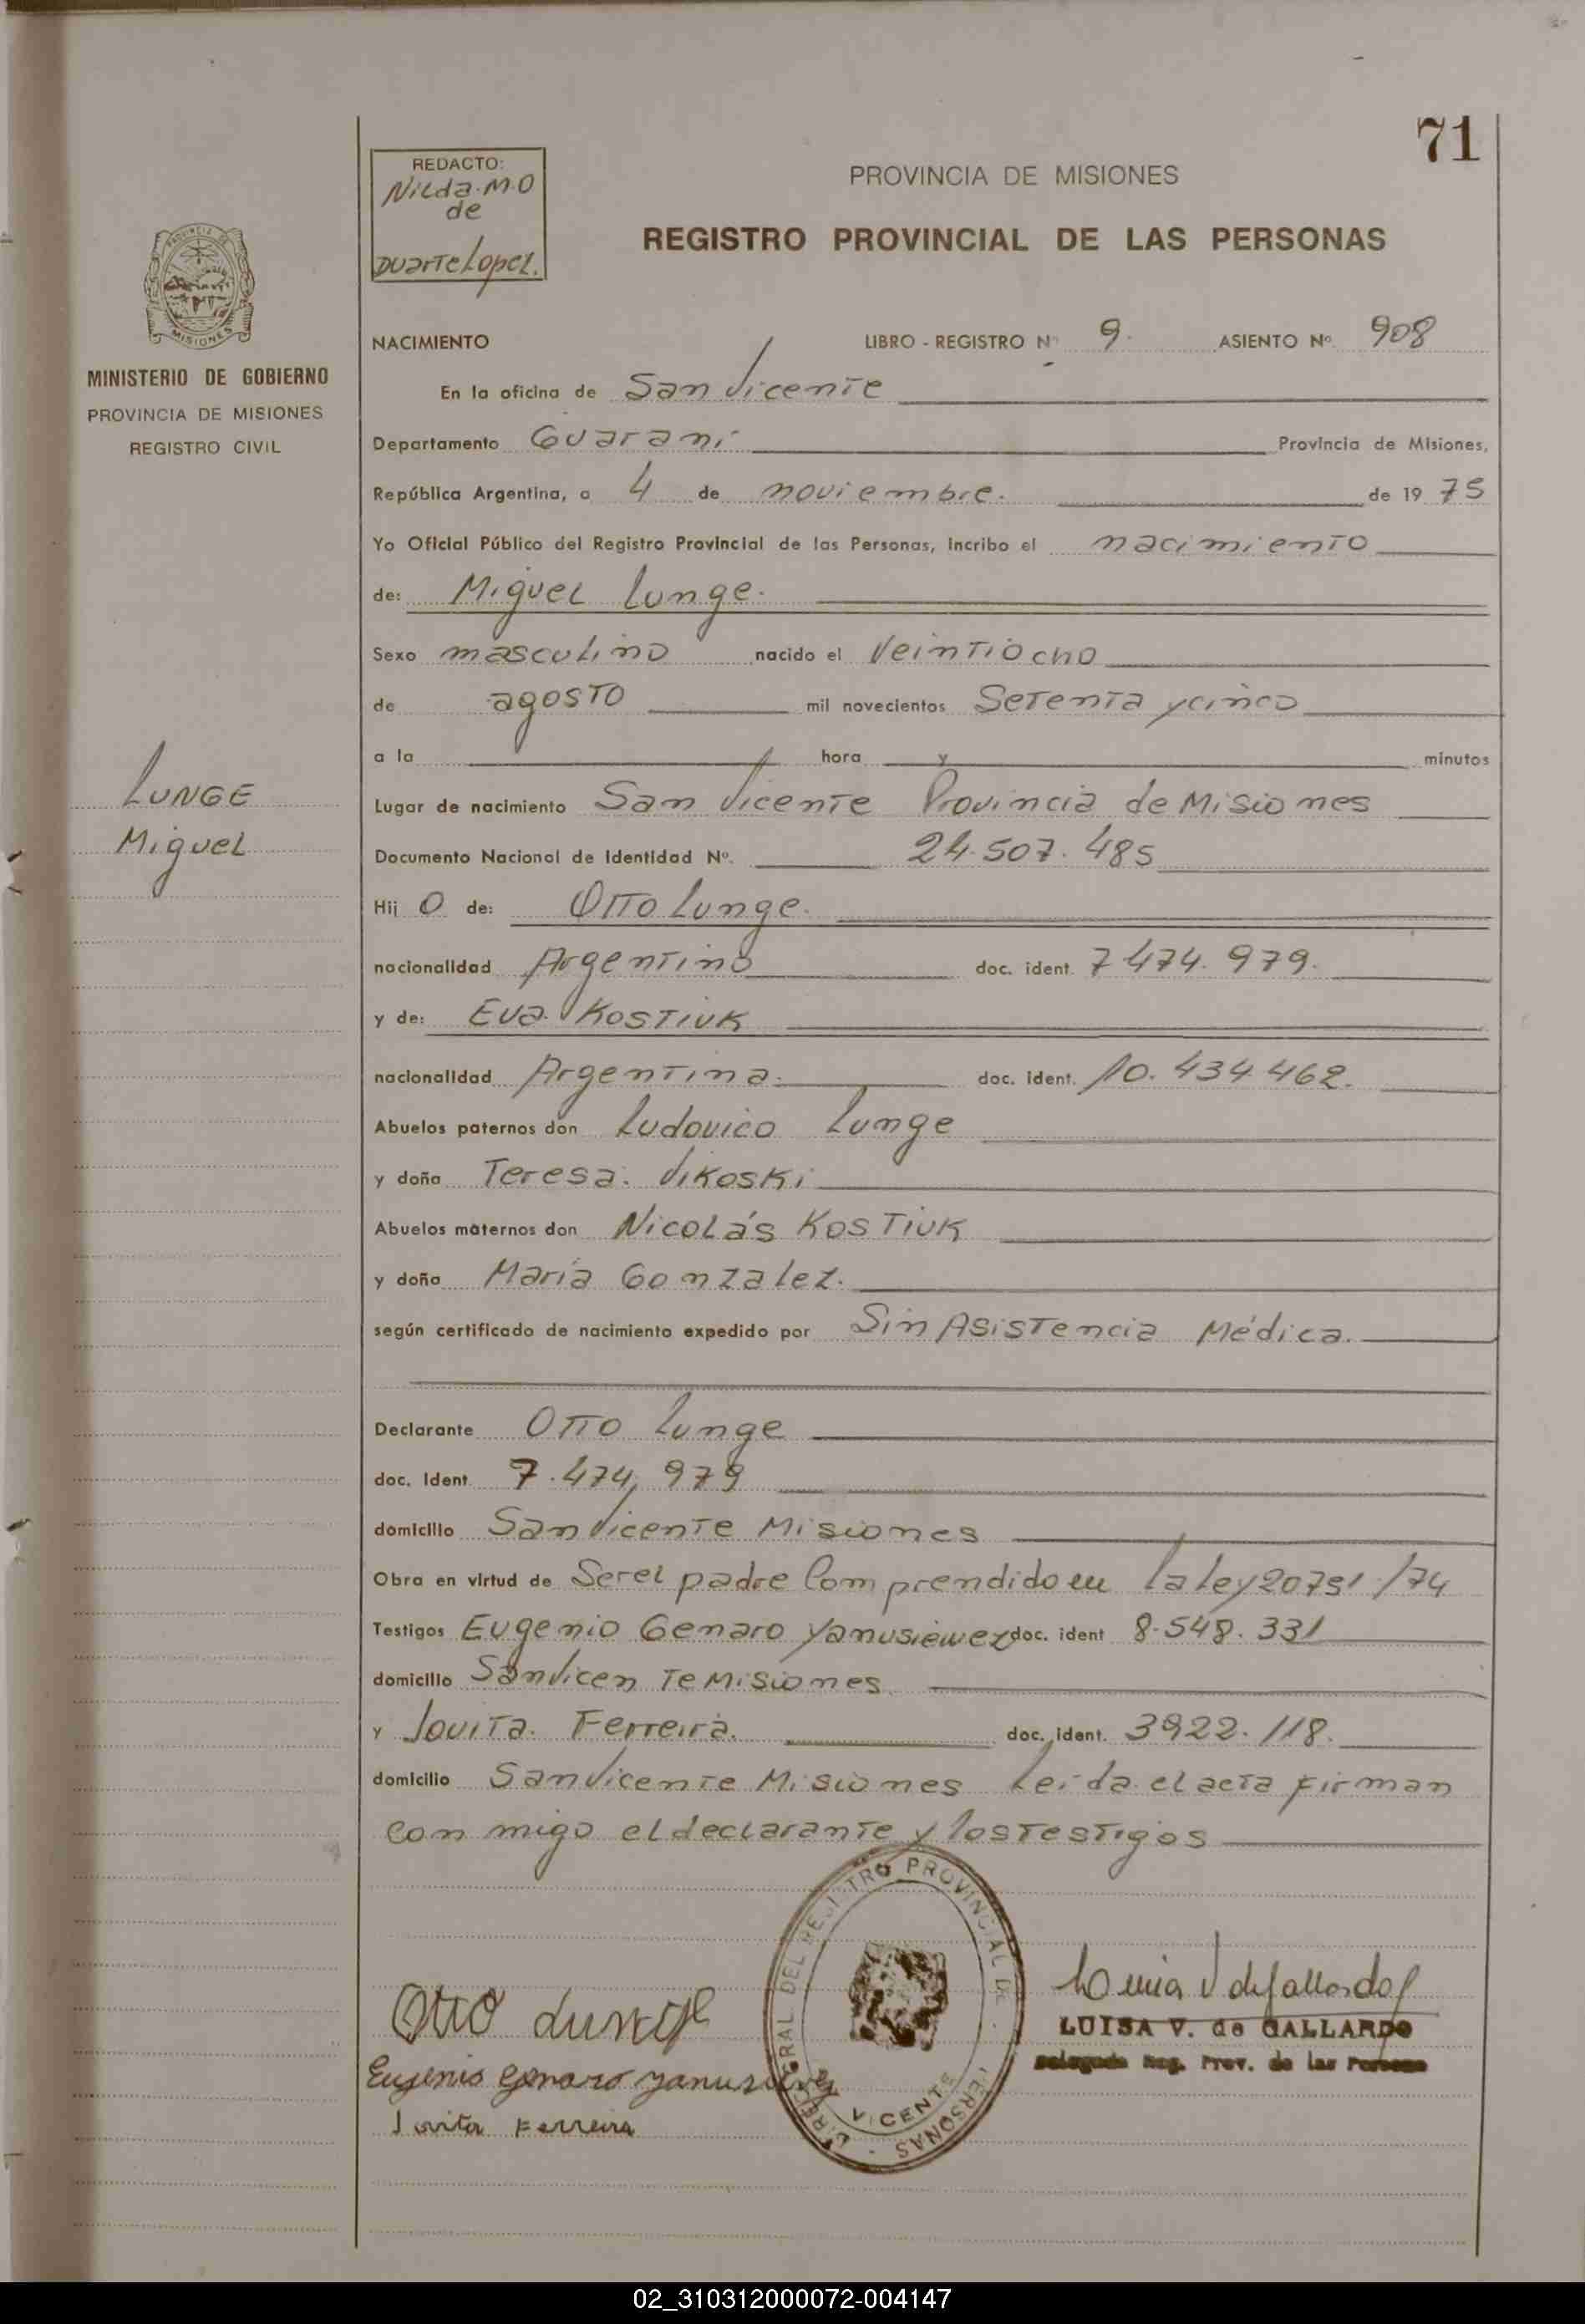 71
REDACTO:
Nilda. M. O
de
Duarte Lopez.
PROVINCIA DE MISIONES
REGISTRO PROVINCIAL DE LAS PERSONAS
MINISTERIO DE GOBIERNO
PROVINCIA DE MISIONES
REGISTRO CIVIL
LUNGE
Miguel
NACIMIENTO LIBRO - REGISTRO Nº 9. ASIENTO Nº 908
En la oficina de San Vicente
Departamento Guaraní Provincia de Misiones,
República Argentina, a 4 de noviembre. de 19 75
Yo Oficial Público del Registro Provincial de las Personas, inscribo el nacimiento
de: Miguel Lunge.
Sexo masculino nacido el veintiocho
de agosto mil novecientos setenta y cinco
a la hora y minutos
Lugar de nacimiento San Vicente Provincia de Misiones
Documento Nacional de Identidad Nº. 24.507.485
Hij o de: Otto Lunge.
nacionalidad Argentino doc. ident. 7474.979.
y de: Eva Kostiuk
nacionalidad Argentina. doc. ident. 10.434.462.
Abuelos paternos don Ludovico Lunge
y doña Teresa. Vikoski
Abuelos maternos don Nicolás Kostiuk
y doña María Gonzalez.
según certificado de nacimiento expedido por Sin Asistencia Médica.
Declarante Otto Lunge
doc. Ident 7.474,979
domicilio San Vicente Misiones
Obra en virtud de Ser el padre Comprendido en la ley 20751/74
Testigos Eugenio Genaro Yanusiewez doc. ident 8.548.331
domicilio San Vicente Misiones
y Jovita. Ferreira. doc. ident. 3922.118.
domicilio San Vicente Misiones Leída el acta firman
con migo el declarante y los testigos
Otto Lunge
Eugenio Genaro Yanusiewez
Jovita Ferreira
REGISTRO PROVINCIAL DE
PERSONAS
VICENTE
Luisa V de Gallardo
LUISA V. de GALLARDO
Delegada Reg. Prov. de las Personas
02_310312000072-004147